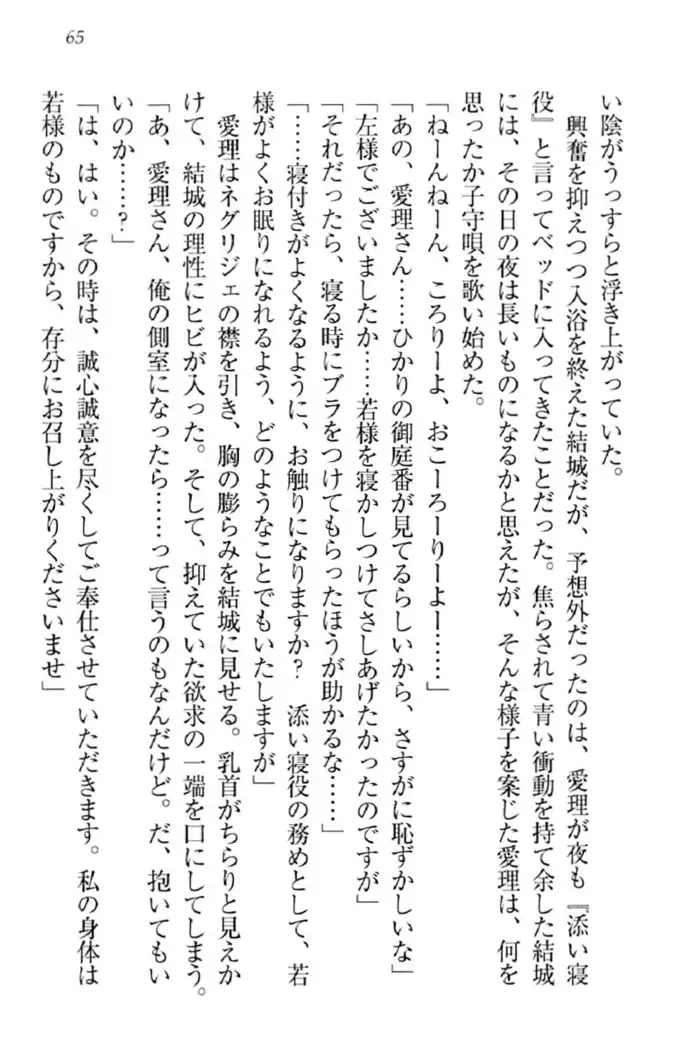 65
い陰がうっすらと浮き上がっていた。
　興奮を抑えつつ入浴を終えた結城だが、予想外だったのは、愛理が夜も『添い寝
役』と言ってベッドに入ってきたことだった。焦らされて青い衝動を持て余した結城
には、その日の夜は長いものになるかと思えたが、そんな様子を案じた愛理は、何を
思ったか子守唄を歌い始めた。
「ねーんねーん、ころりーよ、おこーろーりーよー……」
「あの、愛理さん……ひかりの御庭番が見てるらしいから、さすがに恥ずかしいな」
「左様でございましたか……若様を寝かしつけてさしあげたかったのですが」
「それだったら、寝る時にブラをつけてもらったほうが助かるな……」
「……寝付きがよくなるように、お触りになりますか？　添い寝役の務めとして、若
様がよくお眠りになれるよう、どのようなことでもいたしますが」
　愛理はネグリジェの襟を引き、胸の膨らみを結城に見せる。乳首がちらりと見えか
けて、結城の理性にヒビが入った。そして、抑えていた欲求の一端を口にしてしまう。
「あ、愛理さん、俺の側室になったら……って言うのもなんだけど。だ、抱いてもい
いのか……？」
「は、はい。その時は、誠心誠意を尽くしてご奉仕させていただきます。私の身体は
若様のものですから、存分にお召し上がりくださいませ」